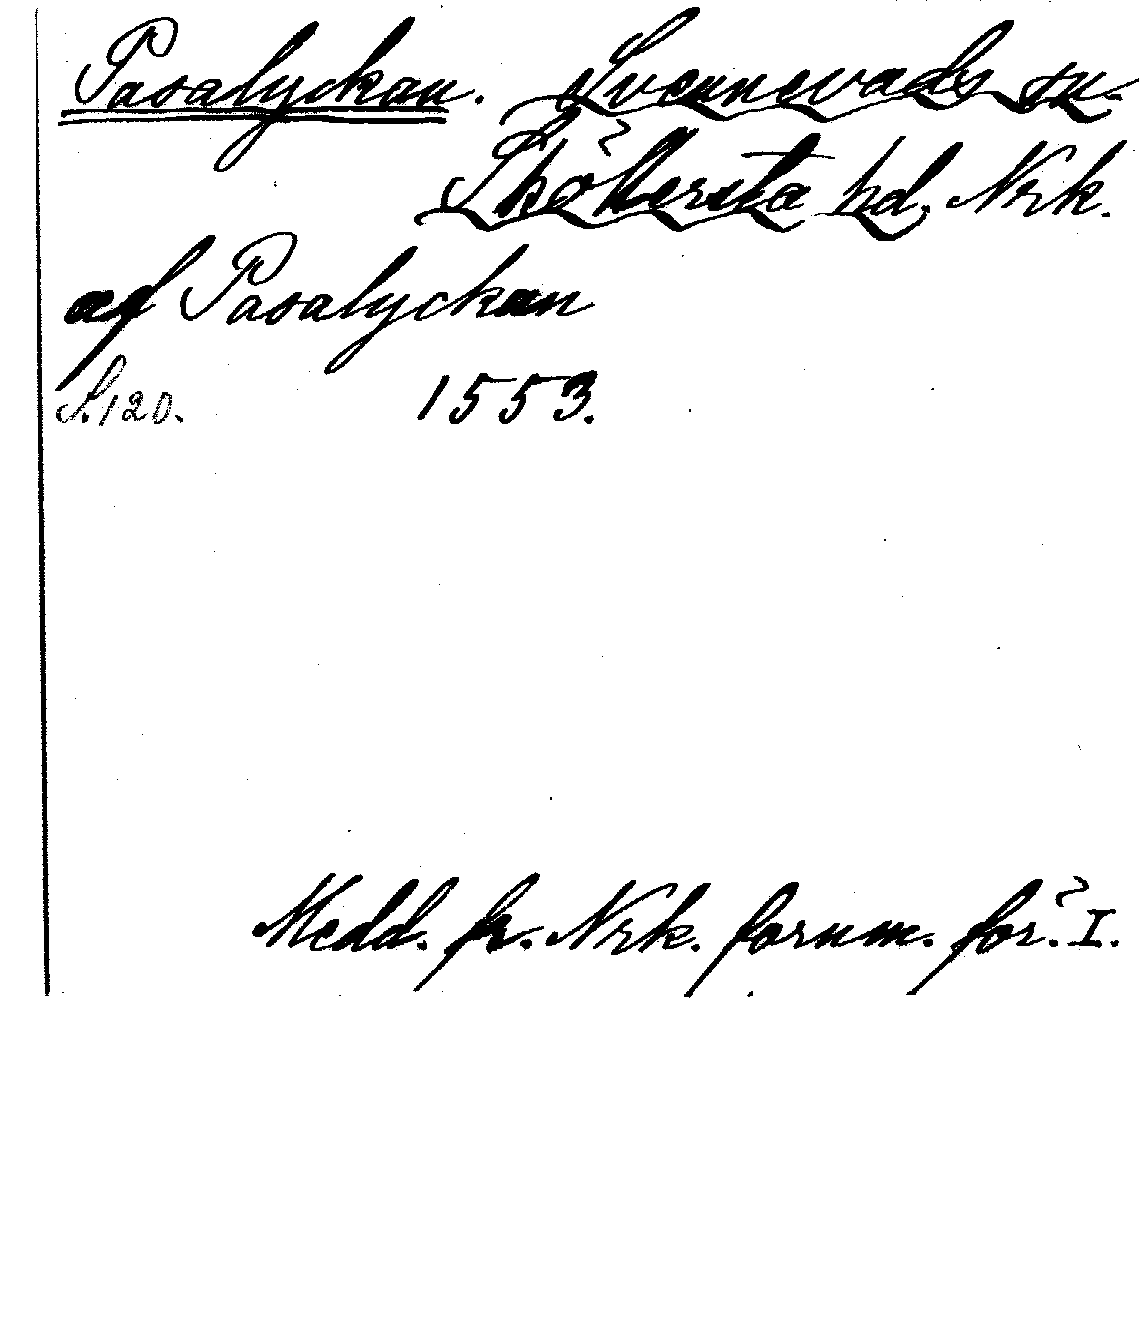 Pasalyckan. Svennevads sn.
Sköllersta hd. Nrk.
af Pasalyckan
S. 120. 1553.
Medd. fr. Nrk. fornm. för. I.